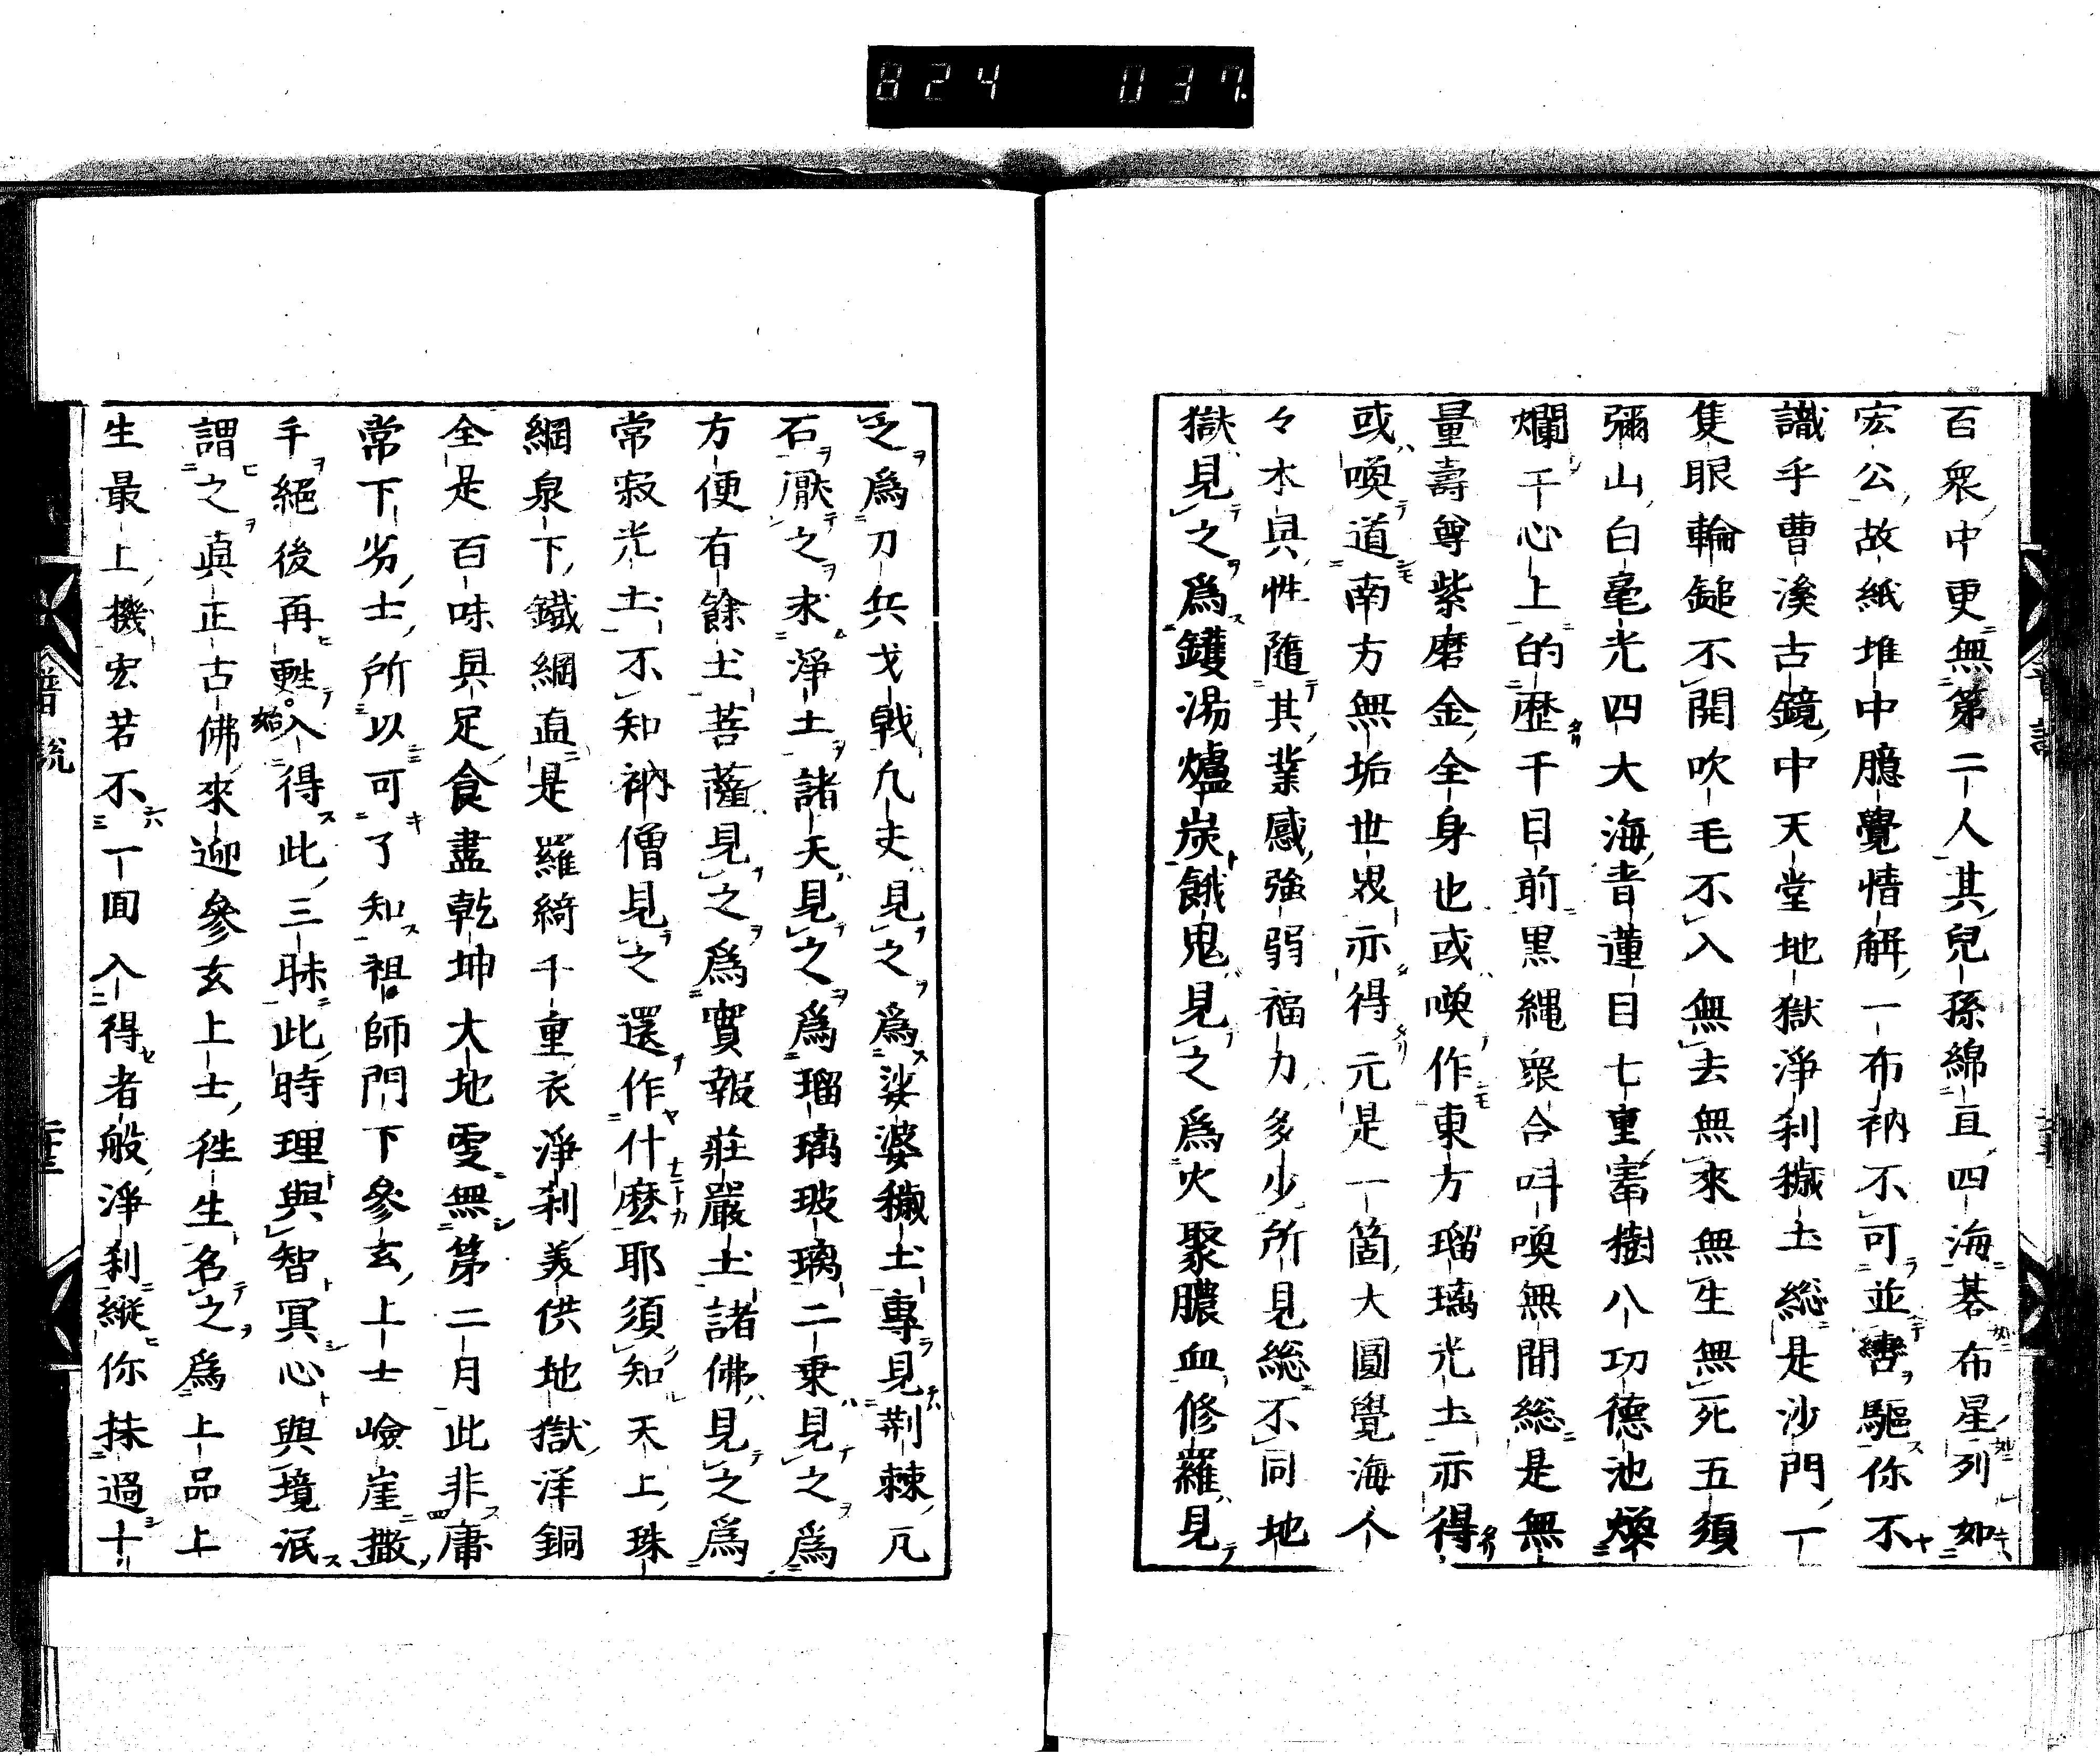 824 037
百衆中更無第二人其兒孫綿亘四海碁布星列如
宏公故紙堆中臆覺情解一布衲不可並轡驅你不
識乎曹溪古鏡中天堂地獄淨刹穢土総是沙門一
隻眼輪鎚不開吹毛不入無去無來無生無死五須
彌山白毫光四大海青蓮目七重寳樹八功德池燦
爛于心上的歷于目前黒縄衆合呌喚無間総是無
量壽尊紫磨金全身也或喚作東方瑠璃光土亦得
或喚道南方無垢世界亦得元是一箇大圓覺海人
々本具性隨其業感強弱福力多少所見総不同地
獄見之爲鑊湯爐炭餓鬼見之爲火聚膿血修羅見
之爲刀兵戈戟凡夫見之爲娑婆穢土專見荆棘凡
石厭之求淨土諸天見之爲瑠璃玻璃二乗見之爲
方便有餘土菩薩見之爲實報莊嚴土諸佛見之爲
常寂光土不知衲僧見之還作什麽耶須知天上珠
綱泉下鐵綱直是羅綺千重衣淨刹美供地獄洋銅
全是百味具足食盡乾坤大地更無第二月此非庸
常下劣士所以可了知祖師門下參玄上士嶮崖撒
手絕後再甦始入得此三昧此時理與智冥心與境泯
謂之眞正古佛來迎參玄上士徃生名之爲上品上
生最上機宏若不一回入得者般淨刹縱你抹過十